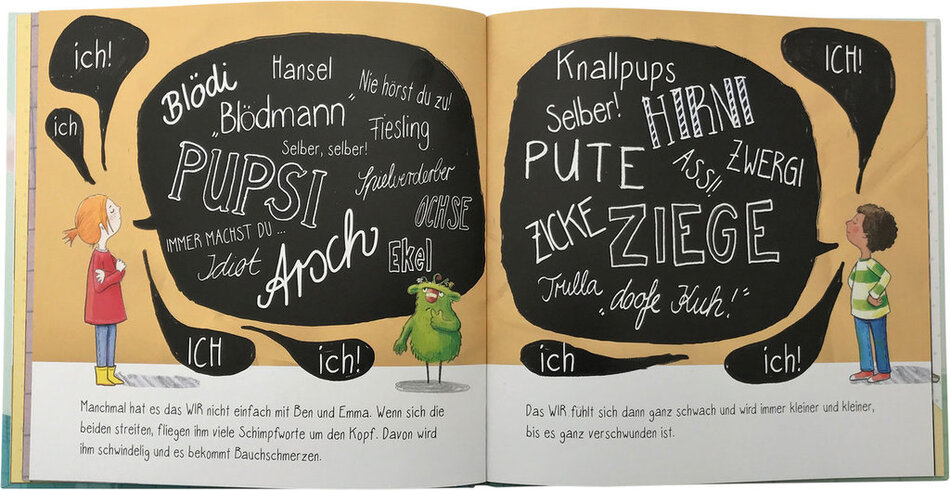 ich!
ich
Blödi
Hansel
Nie hörst du zu!
„Blödmann“
Fiesling
Selber, selber!
PUPSI
Spielverderber
OCHSE
IMMER MACHST DU ...
Idiot
Arsch
Ekel
ICH
ich!
Manchmal hat es das WIR nicht einfach mit Ben und Emma. Wenn sich die
beiden streiten, fliegen ihm viele Schimpfworte um den Kopf. Davon wird
ihm schwindelig und es bekommt Bauchschmerzen.
Knallpups
Selber!
HIRNI
PUTE
ASSI!
ZWERGI
ZICKE
ZIEGE
Trulla
„doofe Kuh!“
ICH!
ich
ich!
Das WIR fühlt sich dann ganz schwach und wird immer kleiner und kleiner,
bis es ganz verschwunden ist.